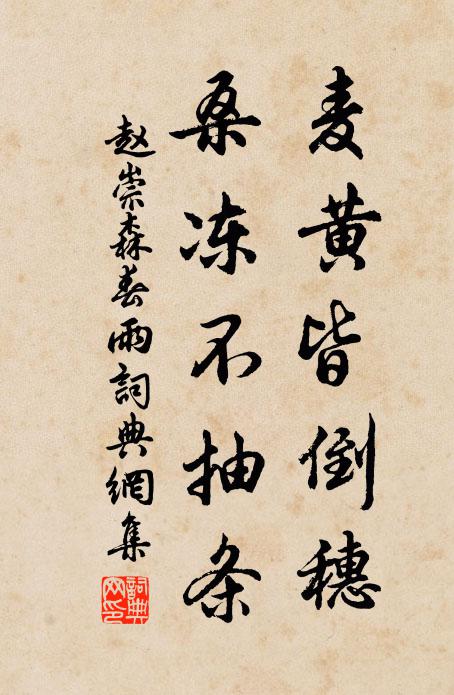 麦黄皆倒穗
桑冻不抽条
赵崇森春雨詞典網集
詞典
网印